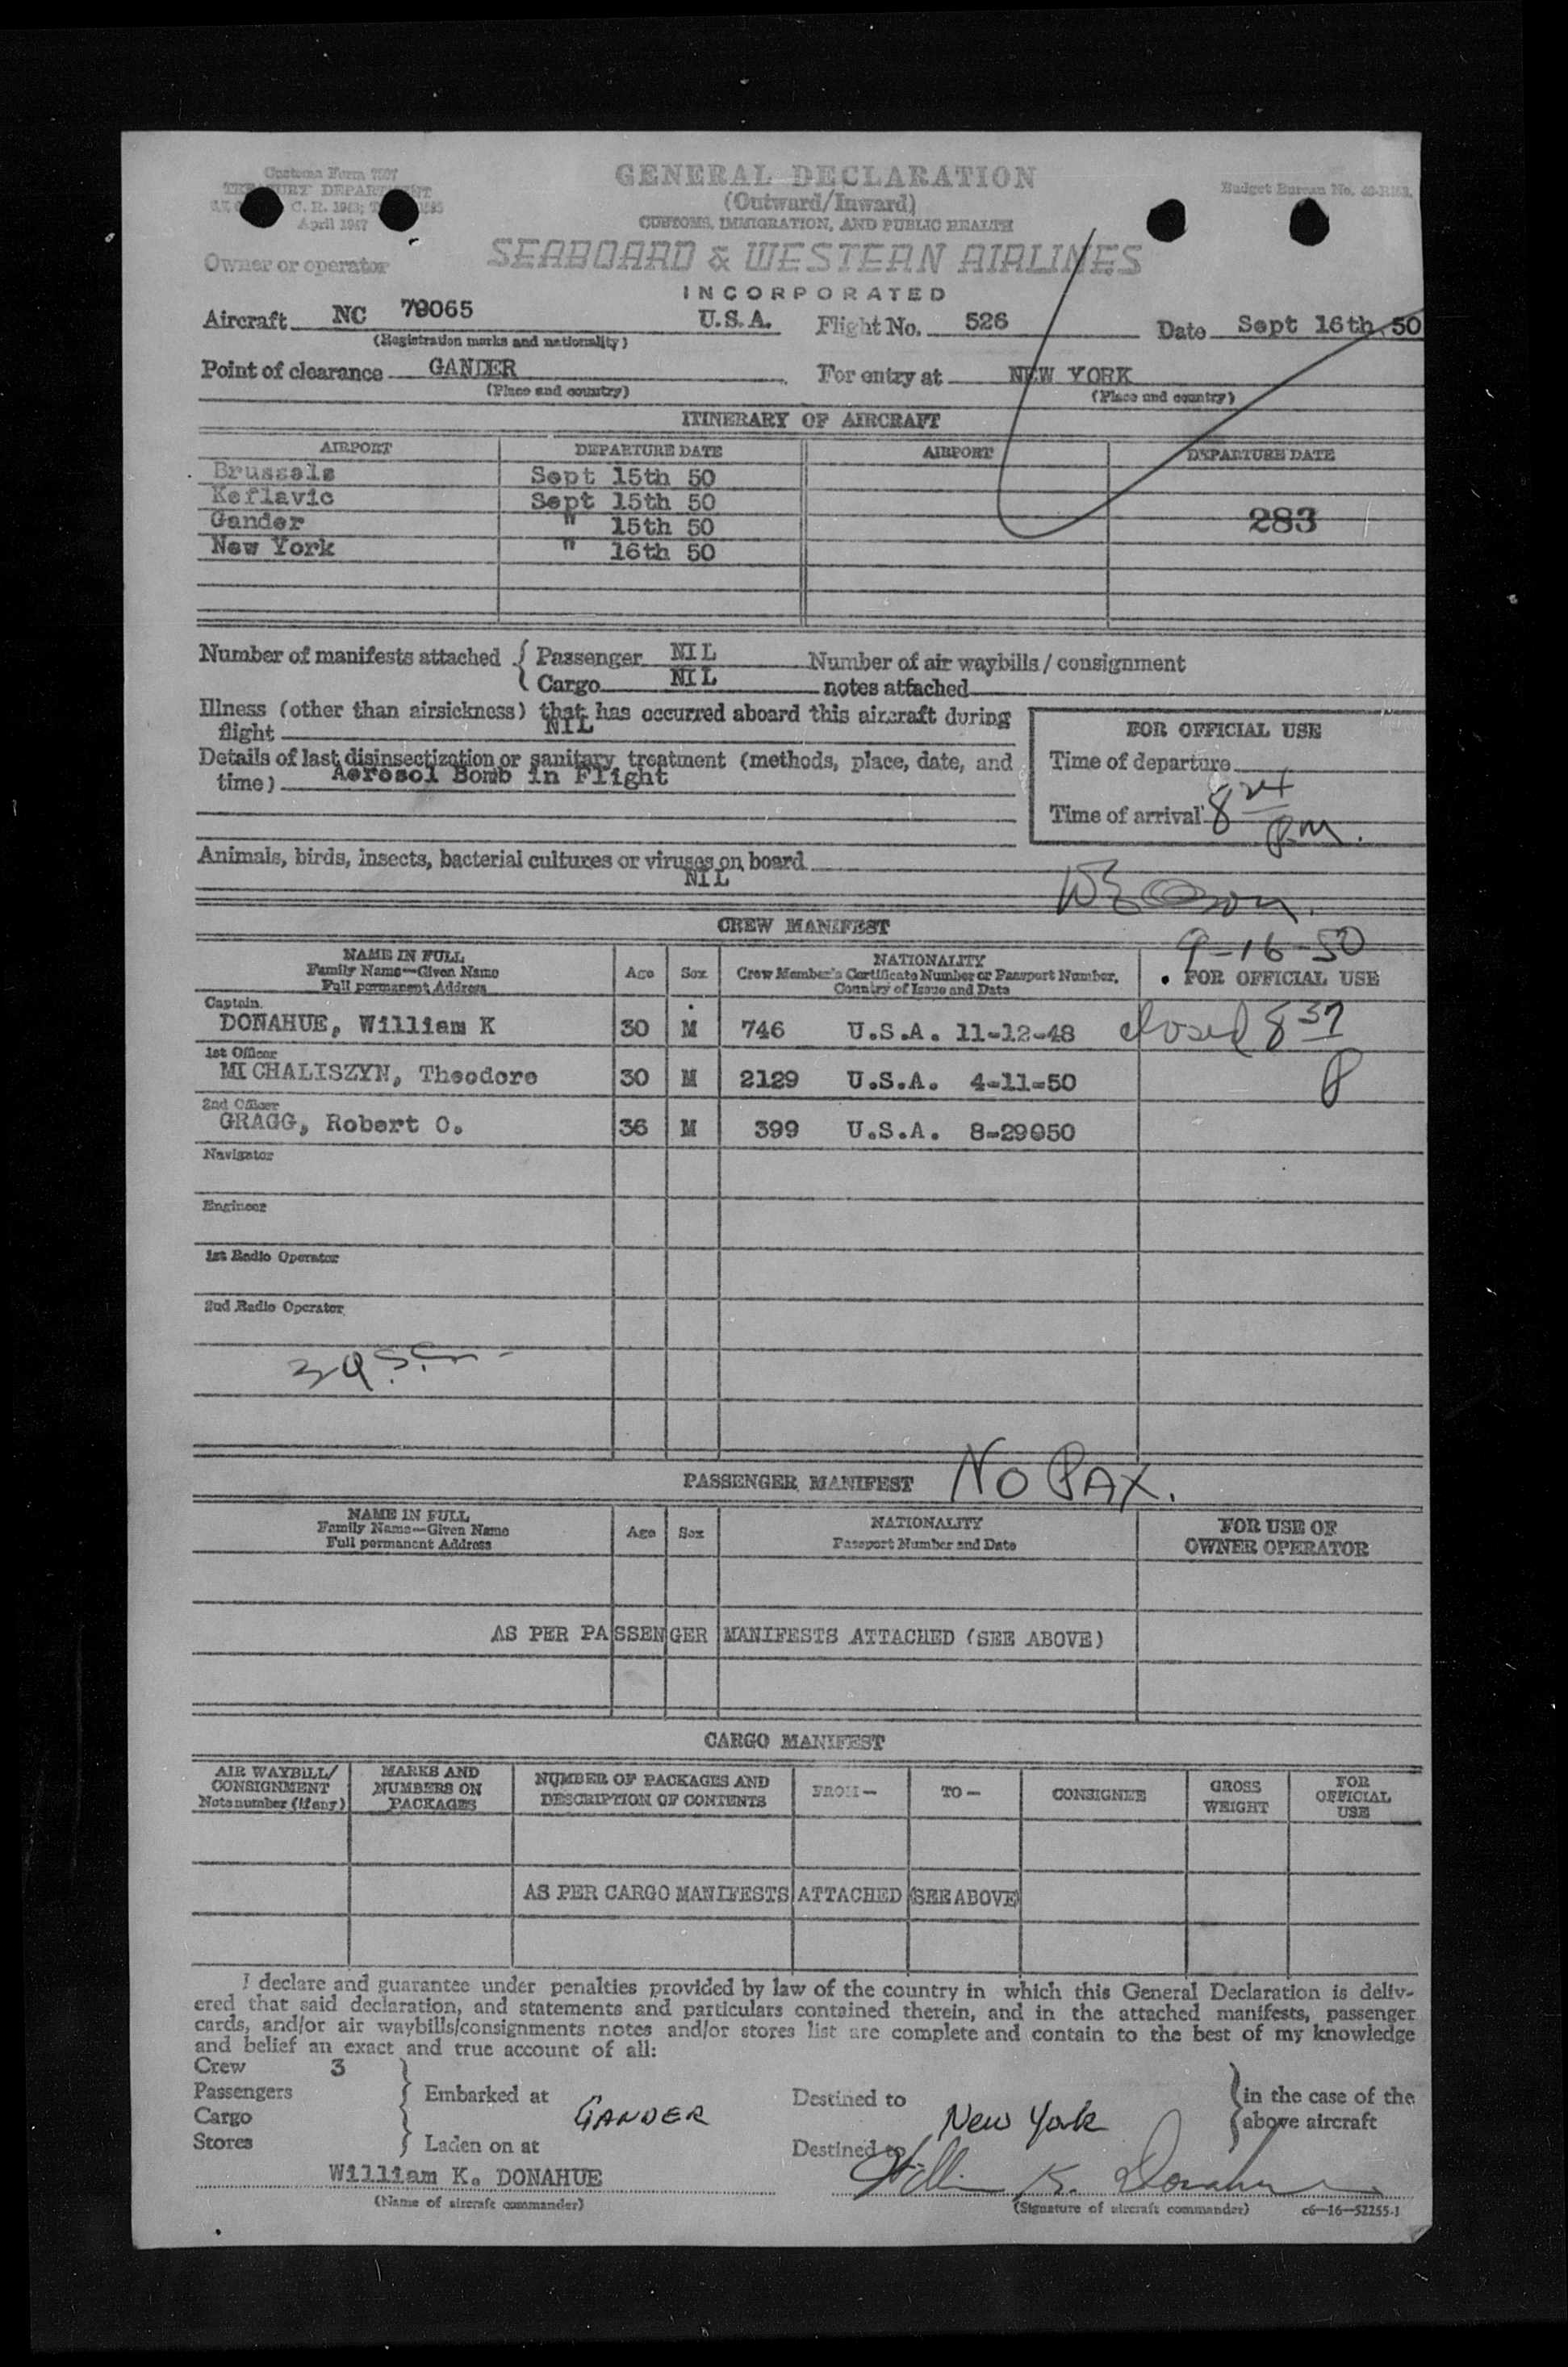 Customs Form 7507
TREASURY DEPARTMENT
April 1947
GENERAL DECLARATION
(Outward/Inward)
CUSTOMS, IMMIGRATION, AND PUBLIC HEALTH
Budget Bureau No.
Owner or operator
SEABOARD & WESTERN AIRLINES
INCORPORATED
Aircraft NC 79065 U.S.A. Flight No. 526 Date Sept 16th 50
(Registration marks and nationality)
Point of clearance GANDER For entry at NEW YORK
(Place and country) (Place and country)
ITINERARY OF AIRCRAFT
AIRPORT DEPARTURE DATE AIRPORT DEPARTURE DATE
Brussels Sept 15th 50
Keflavic Sept 15th 50
Gander " 15th 50 283
New York " 16th 50
Number of manifests attached { Passenger NIL Number of air waybills / consignment
Cargo NIL notes attached
Illness (other than airsickness) that has occurred aboard this aircraft during
flight NIL
FOR OFFICIAL USE
Details of last disinsectization or sanitary treatment (methods, place, date, and
time) Aerosol Bomb in Flight
Time of departure
Time of arrival 8 24 pm.
Animals, birds, insects, bacterial cultures or viruses on board
NIL
CREW MANIFEST
9-16-50
NAME IN FULL
Family Name—Given Name
Full permanent Address
Age Sex
NATIONALITY
Crew Member's Certificate Number or Passport Number,
Country of Issue and Date
FOR OFFICIAL USE
Captain
DONAHUE, William K 30 M 746 U.S.A. 11-12-48 closed 8 37
1st Officer
MICHALISZYN, Theodore 30 M 2129 U.S.A. 4-11-50 P
2nd Officer
GRAGG, Robert O. 36 M 399 U.S.A. 8-29050
Navigator
Engineer
1st Radio Operator
2nd Radio Operator
PASSENGER MANIFEST NO PAX.
NAME IN FULL
Family Name—Given Name
Full permanent Address
Age Sex
NATIONALITY
Passport Number and Date
FOR USE OF
OWNER OPERATOR
AS PER PASSENGER MANIFESTS ATTACHED (SEE ABOVE)
CARGO MANIFEST
AIR WAYBILL/
CONSIGNMENT
Note number (if any)
MARKS AND
NUMBERS ON
PACKAGES
NUMBER OF PACKAGES AND
DESCRIPTION OF CONTENTS
FROM—
TO—
CONSIGNEE
GROSS
WEIGHT
FOR
OFFICIAL
USE
AS PER CARGO MANIFESTS ATTACHED (SEE ABOVE)
I declare and guarantee under penalties provided by law of the country in which this General Declaration is deliv-
ered that said declaration, and statements and particulars contained therein, and in the attached manifests, passenger
cards, and/or air waybills/consignments notes and/or stores list are complete and contain to the best of my knowledge
and belief an exact and true account of all:
Crew 3
Passengers
Cargo
Stores
Embarked at GANDER
Laden on at
Destined to New York
Destined to
in the case of the
above aircraft
William K. DONAHUE William K. Donahue
(Name of aircraft commander) (Signature of aircraft commander) c6—16—52255-1